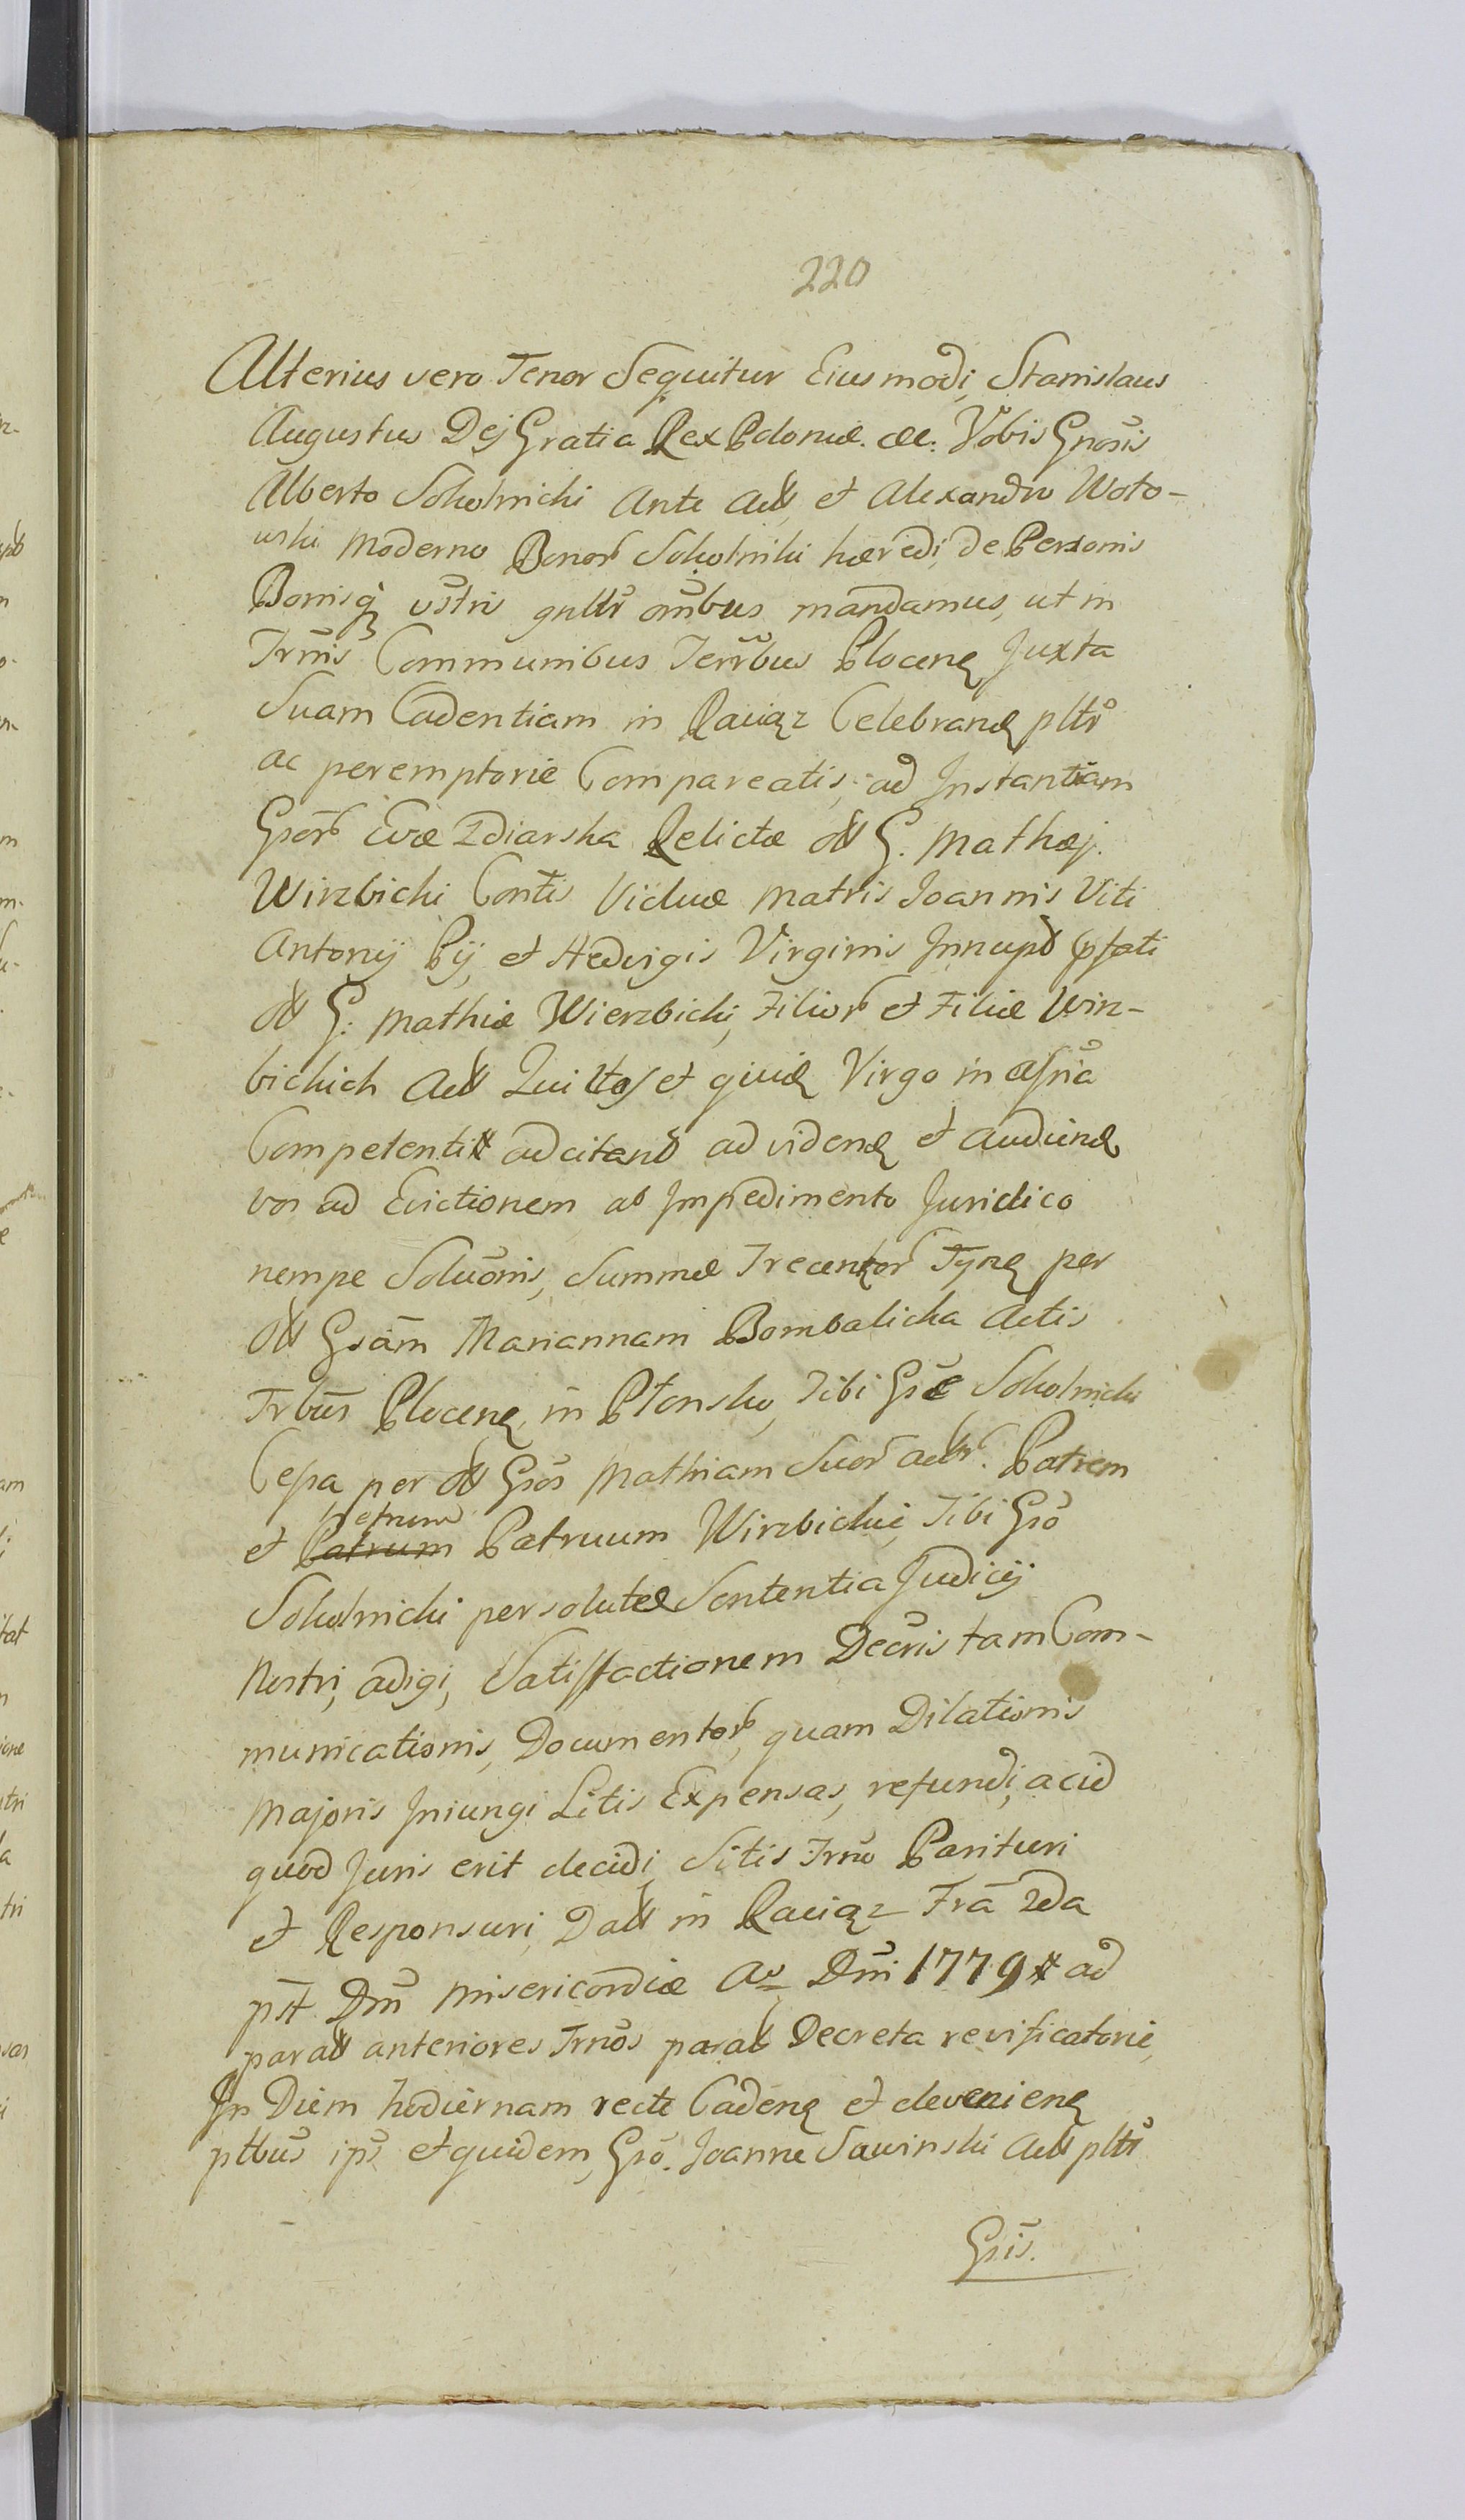 220
Alterius vero Tenor Sequitur Eiusmodi, Stanislaus
Augustus Dej Gratia Rex Poloniæ. &c. Vobis Gnosis
Alberto Sokolnicki Ante Act, et Alexandro Woto-
wski Moderno Bonor Sokolniki hæredi, de Personis
Bonisq vstris gnltr omibus mandamus, ut in
Trmis Communibus Terrbus Plocen Juxta
Suam Cadentiam in Raciąz Celebran pltr
ac peremptorie Compareatis, ad Instantiam
Gsor Evæ Zdiarska Relictæ ol G. Mathæj.
Wirzbicki Contis Viduæ Matris Joannis Viti
Antonij Pij, et Hedvigis Virginis Innup Psati
ol G. Mathiæ Wierzbicki, Filior et Filiæ Wirz-
bickich Act et quid Virgo in assña
Competenti adcitand ad viden et audien
vos ad Evictionem ab Impedimento Juridico
nempe Soluonis, Summæ Trecentor Tynf per
ol Gsam Mariannam Bombalicka Actis
Trbus Plocen, in Płonsko, Tibi Gse Sokolnicki
Cessa per ol Gsos Mathiam Suor actr. Patrem
et Petrum Patruum Wirzbickie, Tibi Gso
Sokolnicki persolutæ Sententia Judicij
Nostri, adigi, Satisfactionem Decris tam Com-
municationis, Documentor, quam Dilationis
Majoris Iniungi Litis Expensas, refundi, ac id
quod Juris erit decidi, Sitis Trno Parituri
et Responsuri, Dat in Raciąz Fra 2da
pst Dm Misericordiæ Ao Dni 1779 ad
parat anteriores Trnos parat Decreta revificatorie,
In Diem hodiernam recte Caden et devenien
ptbus ips et quidem, Gso. Joanne Sawinski Act pltr
Gsis.